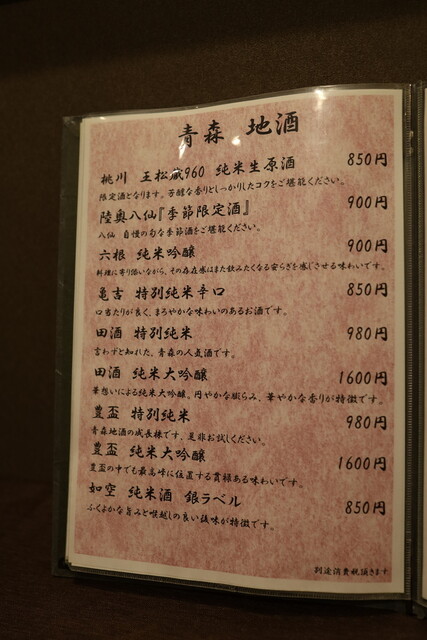 青森 地酒
桃川 王松蔵960 純米生原酒 850円
限定酒となります。芳醇な香りとしっかりしたコクをご堪能ください。
陸奥八仙『季節限定酒』 900円
八仙 自慢の旬な季節酒をご堪能ください。
六根 純米吟醸 900円
料理に寄り添いながら、その存在感はまた飲みたくなる安らぎを感じさせる味わいです。
亀吉 特別純米辛口 850円
口当たりが良く、まろやかな味わいのあるお酒です。
田酒 特別純米 980円
言わずと知れた、青森の人気酒です。
田酒 純米大吟醸 1600円
華想いによる純米大吟醸、円やかな膨らみ、華やかな香りが特徴です。
豊盃 特別純米 980円
青森地酒の成長株です、是非お試しください。
豊盃 純米大吟醸 1600円
豊盃の中でも最高峰に位置する貫禄ある味わいです。
如空 純米酒 銀ラベル 850円
ふくよかな旨みと喉越しの良い後味が特徴です。
別途消費税頂きます